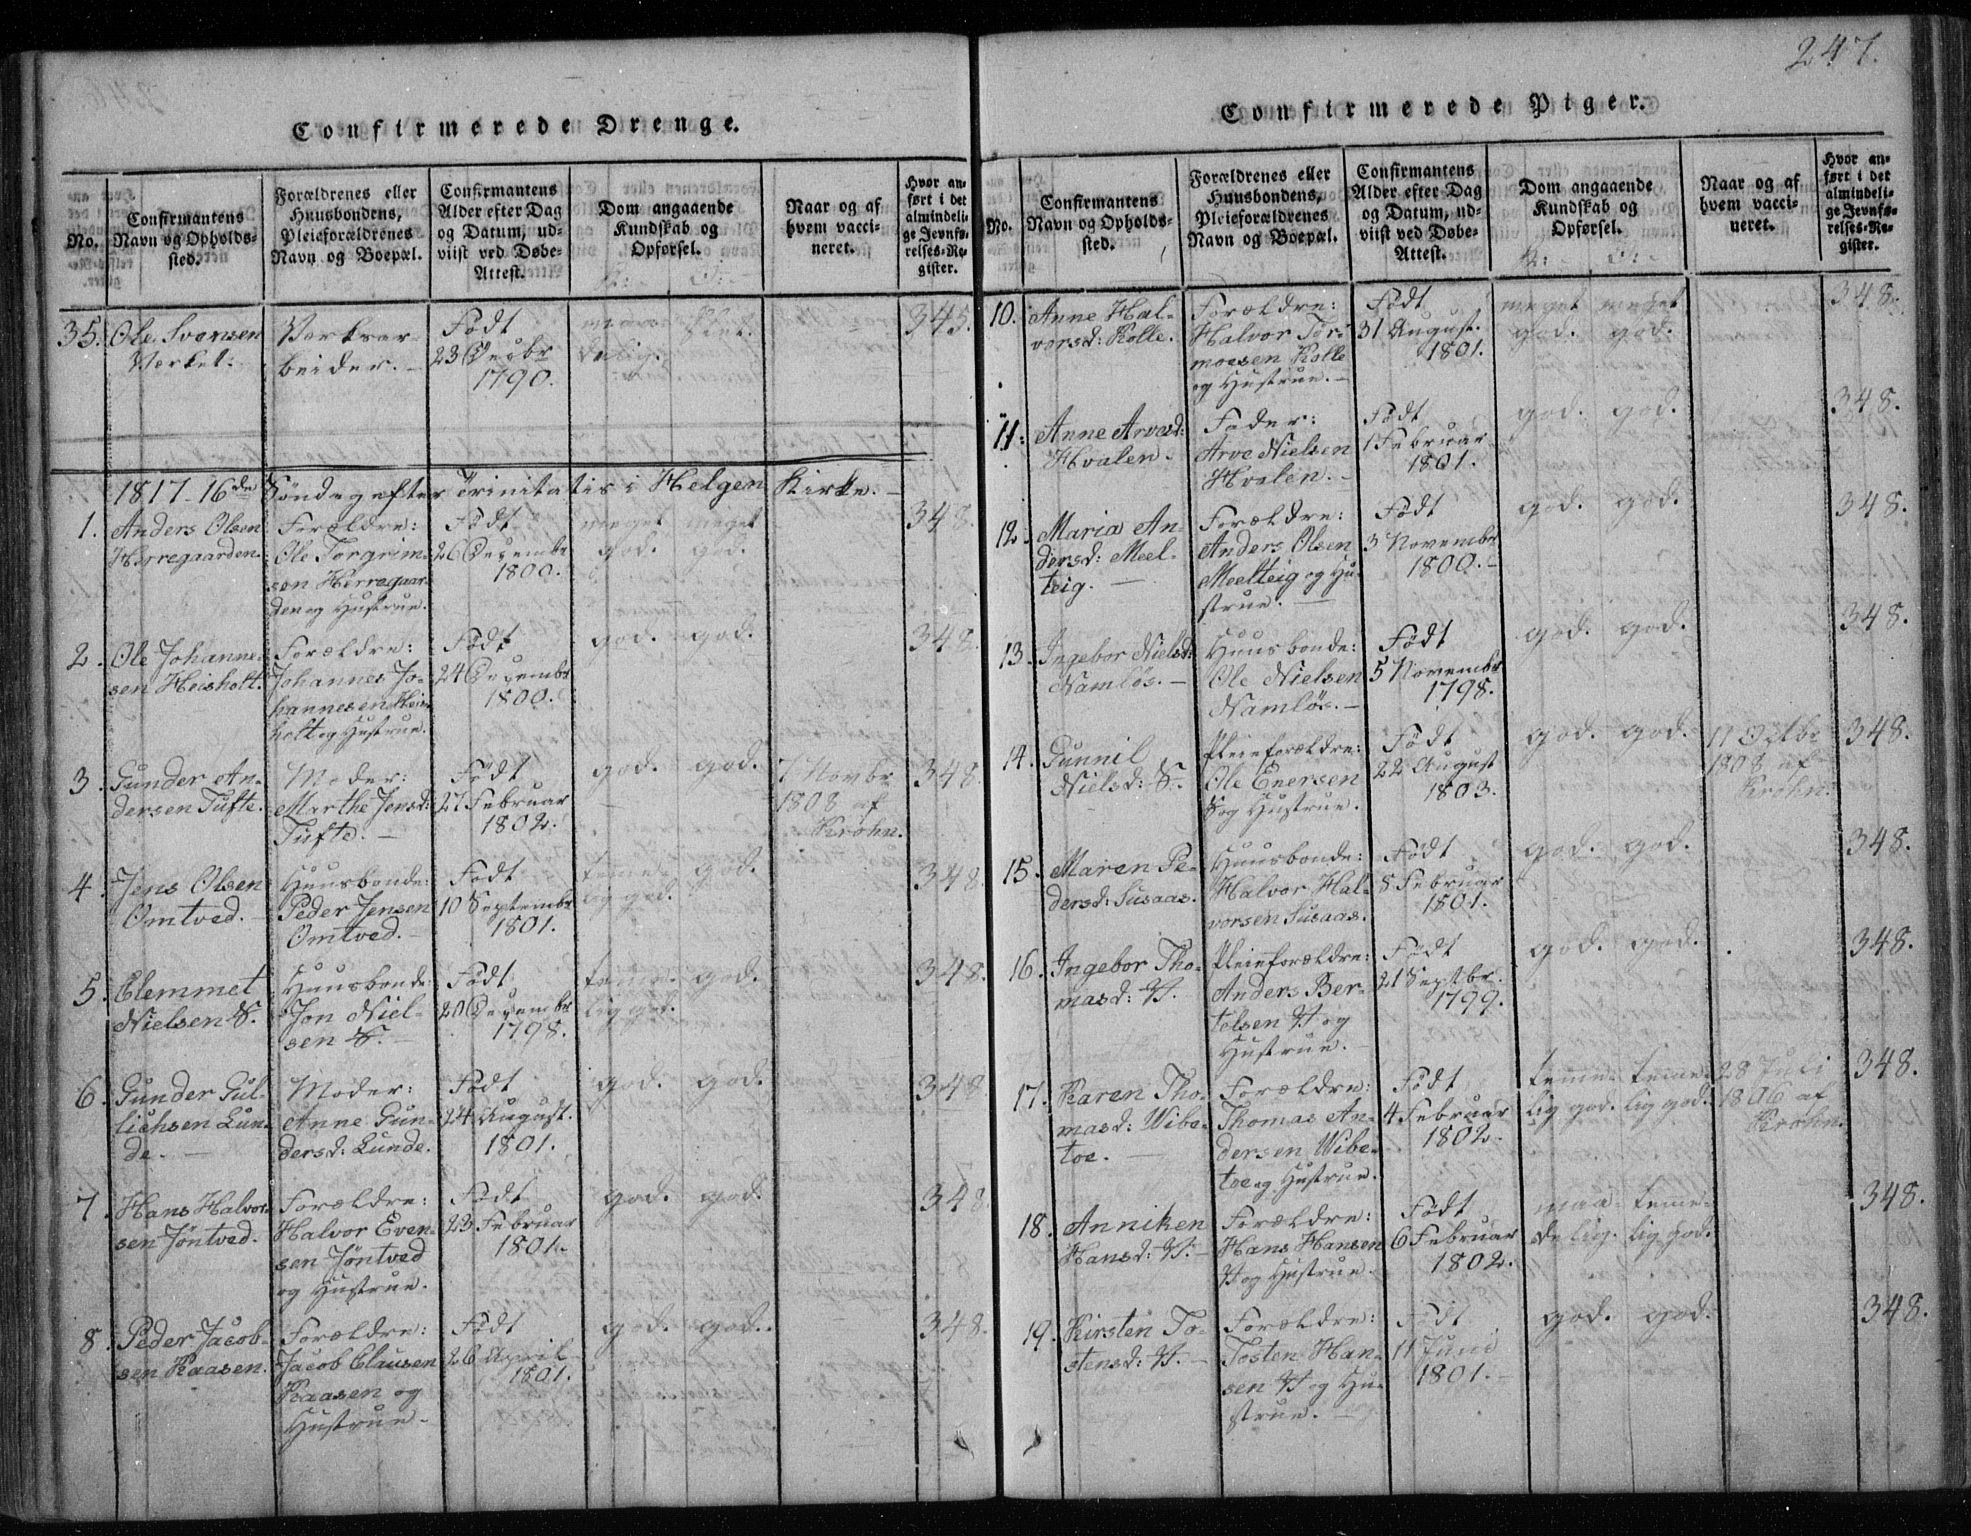 247.
Confirmerede Drenge.
No.
Confirmantens
Navn og Opholds-
sted.
Forældrenes eller
Huusbondens,
Pleieforældrenes
Navn og Boepæl.
Confirmantens
Alder efter Dag
og Datum, ud-
viist ved Døbe-
Attest.
Dom angaaende
Kundskab og
Opførsel.
K: O:
Naar og af
hvem vacci-
neret.
Hvor an-
ført i det
almindeli-
ge Jevnfø-
relses-Re-
gister.
35. Ole Svensen
Værket.
Verksar-
beider.
Født
23
1790.
maa-
delig.
slet.
345.
1817. 16de Søndag efter Trinitatis i Helgen Kirke.
1. Anders Olsen
Herregaarden.
Forældre:
Ole Torgrim-
sen Herregaar-
den og Hustrue.
Født
26 Decembr
1800.
meget
god.
meget
god.
348.
2. Ole Johanne-
sen Heisholt.
Forældre:
Johannes Jo-
hannesen Heis-
holt og Hustrue.
Født
24 Decembr
1800.
god. god.
348.
3. Gunder An-
dersen Tufte.
Moder:
Marthe Jensd:
Tufte.
Født
27 Februar
1802.
god. god.
7 Novbr
1808 af
Krohn.
348.
4. Jens Olsen
Omtved.
Huusbonde:
Peder Jensen
Omtved.
Født
10 Septembr
1801.
teme-
lig god.
god.
348.
5. Clemmet
Nielsen S.
Huusbonde:
Jon Niel-
sen S.
Født
20 Decembr
1798.
teme-
lig god.
god.
348.
6. Gunder Gul-
lichsen Lun-
de.
Moder:
Anne Gun-
dersd: Lunde.
Født
24 August.
1801.
god. god.
348
7. Hans Halvor-
sen Jøntved.
Forældre:
Halvor Even-
sen Jøntved
og Hustrue.
Født
23 Februar
1801.
god. god.
348.
8. Peder Jacob-
sen Kaasen.
Forældre:
Jacob Clausen
Kaasen og
Hustrue.
Født
26 April
1801.
god. god.
348.
Confirmerede Piger.
No.
Confirmantens
Navn og Opholds-
sted.
Forældrenes eller
Huusbondens,
Pleieforældrenes
Navn og Boepæl.
Confirmantens
Alder efter Dag
og Datum, ud-
viist ved Døbe-
Attest.
Dom angaaende
Kundskab og
Opførsel.
K: O:
Naar og af
hvem vacci-
neret.
Hvor an-
ført i det
almindeli-
ge Jevnfø-
relses-Re-
gister.
10. Anne Hal-
vorsd: Kolle.
Forældre:
Halvor Tor-
moesen Kolle
og Hustrue.
Født
31 August.
1801.
meget
god.
meget
god.
348.
11. Anne Arvesd:
Hvalen.
Fader:
Arve Nielsen
Hvalen.
Født
1 Februar
1801.
god. god.
348.
12. Maria An-
dersd: Meel-
teig.
Forældre:
Anders Olsen
Meelteig og Hu-
strue.
Født
3 Novembr
1800.
god. god.
348.
13. Ingebor Nielsd:
Namløs.
Huusbonde:
Ole Nielsen
Namløs.
Født
5 Novembr
1798.
god. god.
348.
14. Gunnil
Nielsd: S.
Pleieforældre:
Ole Enersen
S og Hustrue.
Født
22 August
1803.
god. god.
11 Octbr
1808 af
Krohn.
348.
15. Maren Pe-
dersd: Susaas.
Huusbonde:
Halvor Hal-
vorsen Susaas.
Født
8 Februar
1801.
god. god.
348.
16. Ingebor Tho-
masd:
Pleieforældre:
Anders Ber-
telsen og
Hustrue.
Født
21 Septbr.
1799.
god. god.
348.
17. Karen Tho-
masd: Wibe-
toe.
Forældre:
Thomas An-
dersen Wibe-
toe og Hustrue.
Født
4 Februar
1802.
teme-
lig god.
teme-
lig god.
28 Juli
1806 af
Krohn.
348.
18. Anniken
Hansd:
Forældre:
Hans Hansen
og Hustrue.
Født
6 Februar
1802.
maa-
delig.
teme-
lig god.
348.
19. Kirsten To-
stensd:
Forældre:
Tosten Han-
sen og Hu-
strue.
Født
11 Juni
1801.
god. god.
348.